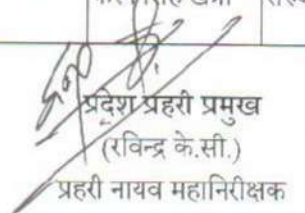 प्रदेश प्रहरी प्रमुख
(रविन्द्र के.सी.)
प्रहरी नायव महानिरीक्षक